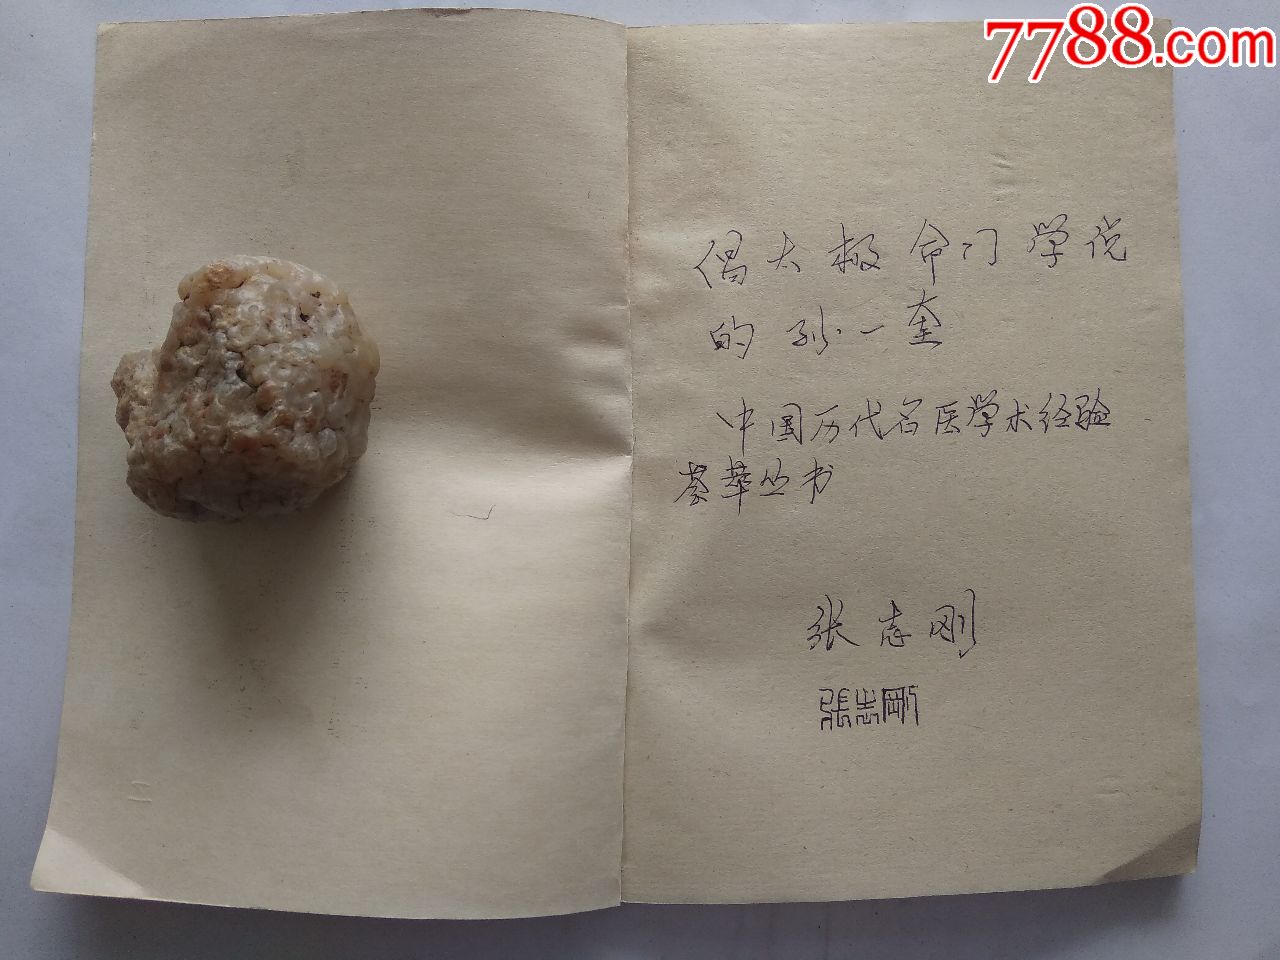 7788.com
倡太极命门学说
的孙一奎
中国历代名医学术经验
荟萃丛书
张志刚
張志剛